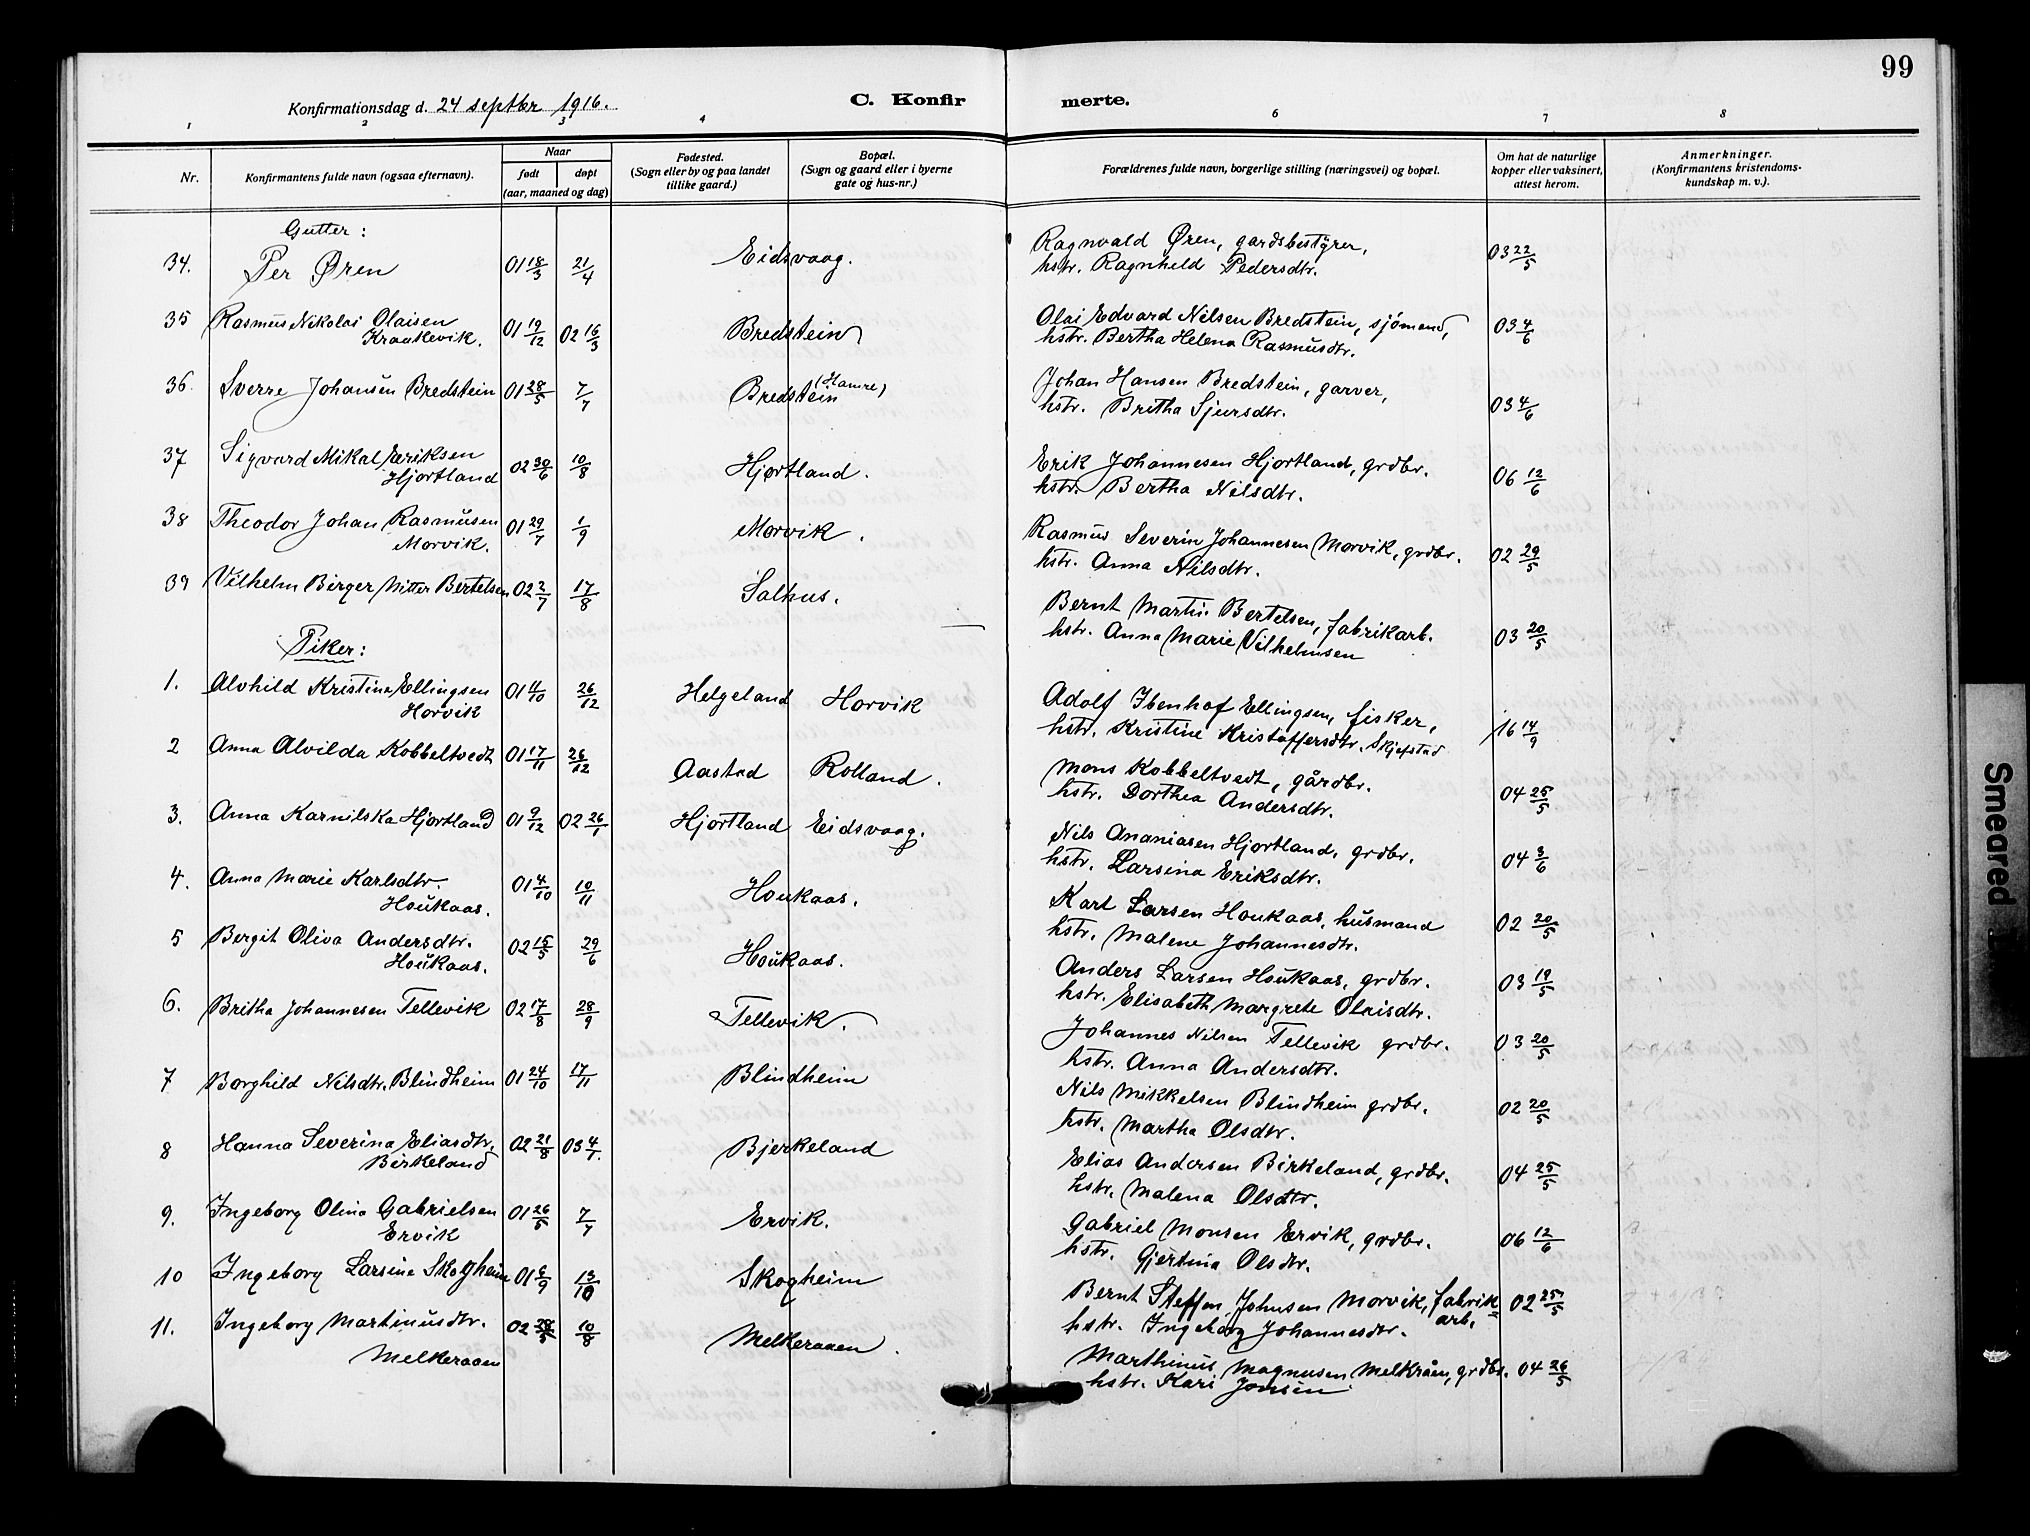 99
Konfirmationsdag d. 24 septbr 1916.
C. Konfirmerte.
1 2 3 4 6 7 8
Nr.
Konfirmantens fulde navn (ogsaa efternavn).
Naar
født døpt
(aar, maaned og dag)
Fødested.
(Sogn eller by og paa landet
tillike gaard.)
Bopæl.
(Sogn og gaard eller i byerne
gate og hus-nr.)
Forældrenes fulde navn, borgerlige stilling (næringsvei) og bopæl.
Om hat de naturlige
kopper eller vaksinert,
attest herom.
Anmerkninger.
(Konfirmantens kristendoms-
kundskap m. v.).
Gutter:
34. Per Øren 01 18/3 21/4 Eidsvaag. Ragnvald Øren, gardsbestyrer, 03 22/5
hstr. Ragnhild Pedersdtr.
35 Rasmus Nikolai Olaisen 01 19/12 02 16/3 Bredstein Olai Edvard Nilsen Bredstein, sjömand, 03 4/6
Kraakevik. hstr. Bertha Helena Rasmusdtr.
36. Sverre Johansen Bredstein 01 28/5 7/7 Bredstein (Hamre) Johan Hansen Bredstein, garver, 03 4/6
hstr. Britha Sjursdtr.
37 Sigvard Mikal Eriksen 02 30/6 10/8 Hjortland. Erik Johannesen Hjortland, grdbr. 06 12/6
Hjortland hstr. Bertha Nilsdtr.
38 Theodor Johan Rasmusen 01 29/7 1/9 Morvik. Rasmus Severin Johannesen Morvik, grdbr. 02 29/5
Morvik. hstr. Anna Nilsdtr.
39 Vilhelm Birger Mitter Bertelsen 02 2/7 17/8 Salhus. Bernt Martin Bertelsen, fabrikarb. 03 20/5
hstr. Anna Marie Vilhelmsen
Piker:
1. Alvhild Kristine Ellingsen 01 4/10 26/12 Helgeland Horvik Adolf Ibenhof Ellingsen, fisker, 16 14/9
Horvik hstr. Kristine Kristoffersdtr. Skjefstad
2 Anna Alvilda Kobbeltvedt 01 17/11 26/12 Aastad Rolland. Mons Kobbeltvedt, gårdbr. 04 25/5
hstr. Dorthea Andersdtr.
3. Anna Karnilska Hjortland 01 9/12 02 26/1 Hjortland Eidsvaag. Nils Ananiasen Hjortland, grdbr. 04 3/6
hstr. Larsina Eriksdtr.
4. Anna Marie Karlsdtr. 01 4/10 10/11 Houkaas. Karl Larsen Houkaas, husmand 02 20/5
Houkaas. hstr. Malene Johannesdtr.
5 Bergit Oliva Andersdtr. 02 15/5 29/6 Houkaas. Anders Larsen Houkaas, grdbr. 03 19/5
Houkaas. hstr. Elisabeth Margrete Olaisdtr.
6. Britha Johannesen Tellevik 02 17/8 28/9 Tellevik. Johannes Nilsen Tellevik grdbr. 03 20/5
hstr. Anna Andersdtr.
7 Borghild Nilsdtr. Blindheim 01 24/10 17/11 Blindheim Nils Mikkelsen Blindheim grdbr. 02 20/5
hstr. Martha Olsdtr.
8 Hanna Severina Eliasdtr. 02 21/8 03 4/1. Bjerkeland Elias Andersen Birkeland, grdbr. 04 25/5
Birkeland hstr. Malena Olsdtr.
9. Ingeborg Olina Gabrielsen 01 26/5 7/7 Ervik. Gabriel Monsen Ervik, grdbr. 06 12/6
Ervik hstr. Gjertina Olsdtr.
10 Ingeborg Larsine Skogheim 01 6/9 13/10 Skogheim Bernt Steffen Johnsen Morvik, fabrik= 02 25/5
arb.
hstr. Ingeborg Johannesdtr.
11. Ingeborg Martinusdtr. 02 28/5 10/8 Melkeraaen. Marthinus Magnusen Melkråen, grdbr. 04 26/5
Melkeraaen hstr. Kari Jonsen
Smeared